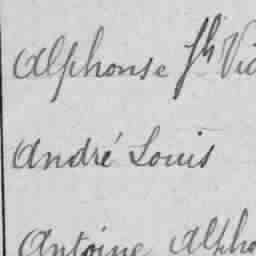 Alphonse Jh Vic
André Louis
Antoine Alpho